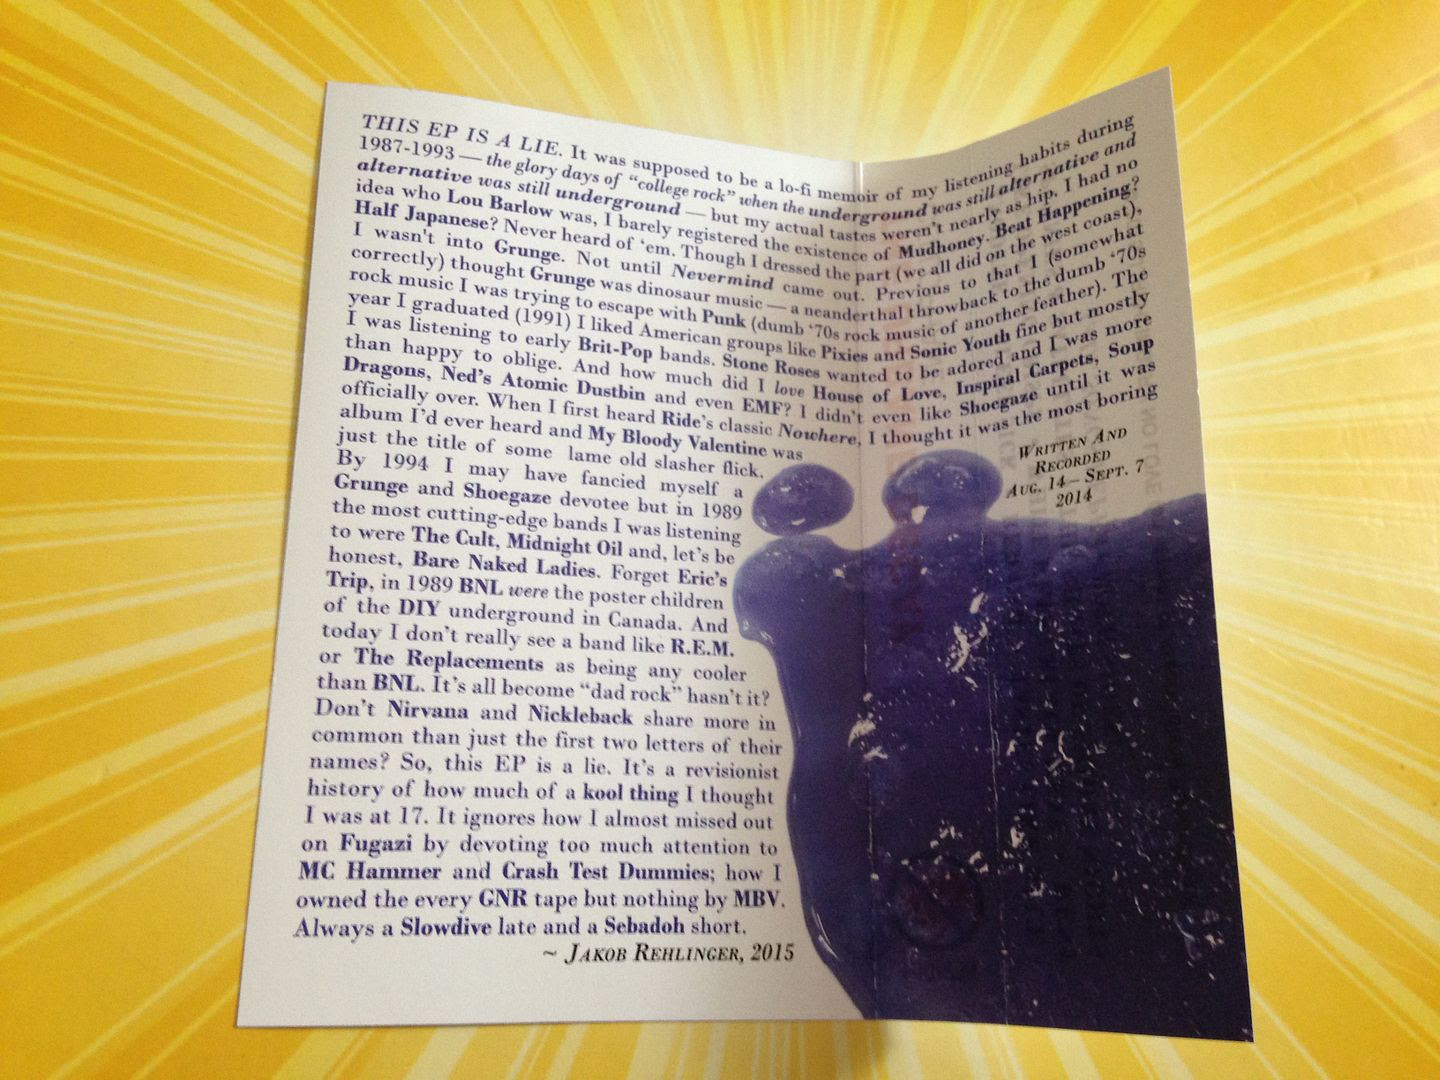 THIS EP IS A LIE. It was supposed to be a lo-fi memoir of my listening habits during
1987-1993 — the glory days of “college rock” when the underground was still alternative and
alternative was still underground — but my actual tastes weren't nearly as hip. I had no
idea who Lou Barlow was, I barely registered the existence of Mudhoney. Beat Happening?
Half Japanese? Never heard of ‘em. Though I dressed the part (we all did on the west coast),
I wasn't into Grunge. Not until Nevermind came out. Previous to that I (somewhat
correctly) thought Grunge was dinosaur music — a neanderthal throwback to the dumb ‘70s
rock music I was trying to escape with Punk (dumb ‘70s rock music of another feather). The
year I graduated (1991) I liked American groups like Pixies and Sonic Youth fine but mostly
I was listening to early Brit-Pop bands. Stone Roses wanted to be adored and I was more
than happy to oblige. And how much did I love House of Love, Inspiral Carpets, Soup
Dragons, Ned's Atomic Dustbin and even EMF? I didn't even like Shoegaze until it was
officially over. When I first heard Ride's classic Nowhere, I thought it was the most boring
album I'd ever heard and My Bloody Valentine was
just the title of some lame old slasher flick.
By 1994 I may have fancied myself a
Grunge and Shoegaze devotee but in 1989
the most cutting-edge bands I was listening
to were The Cult, Midnight Oil and, let's be
honest, Bare Naked Ladies. Forget Eric's
Trip, in 1989 BNL were the poster children
of the DIY underground in Canada. And
today I don't really see a band like R.E.M.
or The Replacements as being any cooler
than BNL. It's all become “dad rock” hasn't it?
Don't Nirvana and Nickleback share more in
common than just the first two letters of their
names? So, this EP is a lie. It's a revisionist
history of how much of a kool thing I thought
I was at 17. It ignores how I almost missed out
on Fugazi by devoting too much attention to
MC Hammer and Crash Test Dummies; how I
owned the every GNR tape but nothing by MBV.
Always a Slowdive late and a Sebadoh short.
~ JAKOB REHLINGER, 2015
WRITTEN AND
RECORDED
AUG. 14 – SEPT. 7
2014